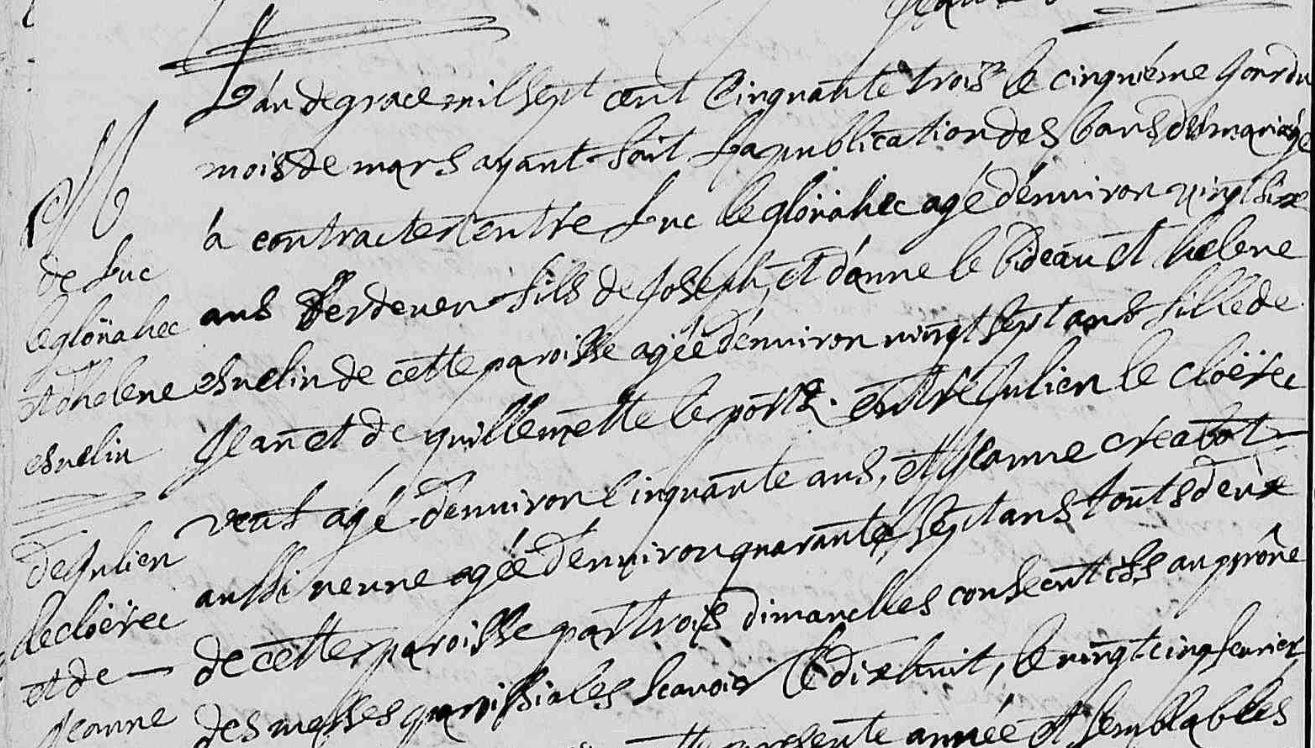 L'an de grace mil sept cent Cinquante trois le cinquiéme Jour du
mois de mars ayant fait La publication des bans de mariage
à contracter entre Luc le gloüahec agé d'enuiron vingt six
ans d'erdeuen fils de Joseph, et d'anne le Bideau et helene
esuelin de cette paroisse agéé d'enuiron vingt sept ans fille de
Jean et de guillemette le portz. entre Julien le cloërec
veuf agé d'enuiron cinquante ans, et Jeanne creabot
aussi veuue agéé d'enuiron quarante sept ans touts deux
de cette paroisse par trois dimanches consecutifs au prône
des messes paroissiales scauoir le dixhuit, le vingt cinq feurier
presente année et semblables
M
de Luc
le gloüahec
et d'helene
esuelin
de Julien
le cloërec
et de
Jeanne